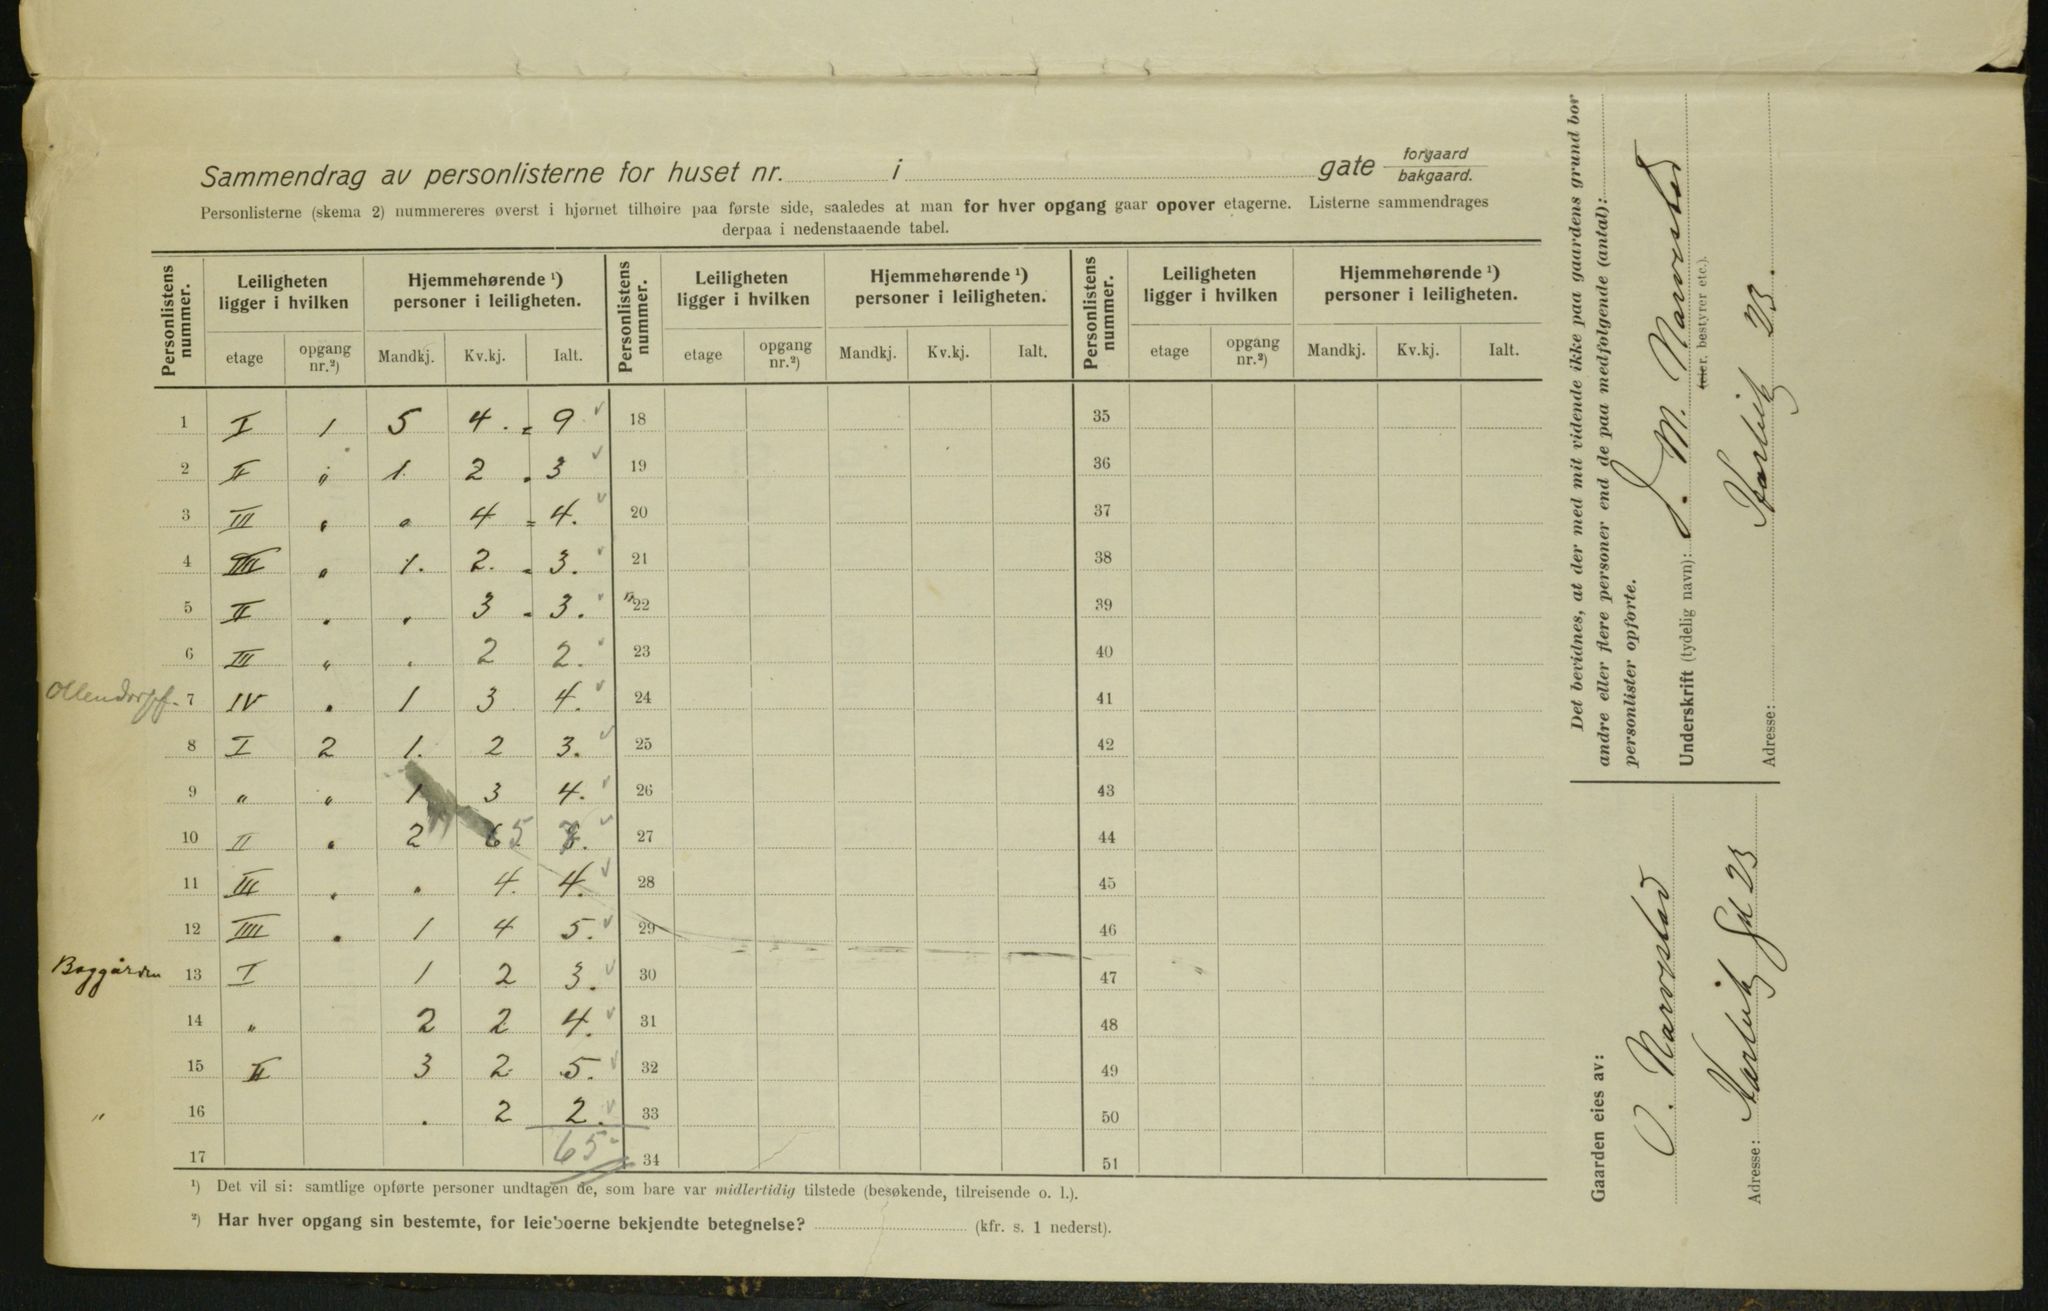 Sammendrag av personlisterne for huset nr. i gate forgaard bakgaard.
Personlisterne (skema 2) nummereres øverst i hjørnet tilhøire paa første side, saaledes at man for hver opgang gaar opover etagerne. Listerne sammendrages
derpaa i nedenstaaende tabel.
Personlistens nummer. Leiligheten ligger i hvilken Hjemmehørende ¹) personer i leiligheten. Personlistens nummer. Leiligheten ligger i hvilken Hjemmehørende ¹) personer i leiligheten. Personlistens nummer. Leiligheten ligger i hvilken Hjemmehørende ¹) personer i leiligheten.
etage opgang nr.²) Mandkj. Kv.kj. Ialt. etage opgang nr.²) Mandkj. Kv.kj. Ialt. etage opgang nr.²) Mandkj. Kv.kj. Ialt.
1 I 1 5 4 = 9 18 35
2 II " 1 2 . 3 19 36
3 III " . 4 = 4. 20 37
4 IIII " 1. 2. = 3. 21 38
5 II . . 3 . 3. 22 39
6 III " . 2 2. 23 40
Ollendorpf. 7 IV . 1 3 4. 24 41
8 I 2 1. 2 3. 25 42
9 " " 1 3 4. 26 43
10 II . 2 5 7. 27 44
11 III . . 4. 4. 28 45
12 IIII . 1 4 5. 29 46
Baggården 13 I 1 2 3. 30 47
14 " 2 2 4. 31 48
15 II 3 2 5. 32 49
" 16 . 2 2. 33 50
17 65 34 51
¹) Det vil si: samtlige opførte personer undtagen de, som bare var midlertidig tilstede (besøkende, tilreisende o. l.).
²) Har hver opgang sin bestemte, for leieboerne bekjendte betegnelse? (kfr. s. 1 nederst).
Det bevidnes, at der med mit vidende ikke paa gaardens grund bor
andre eller flere personer end de paa medfølgende (antal):
personlister opførte.
Underskrift (tydelig navn): J. M. Narvestad
(eier. bestyrer etc.).
Adresse: 23.
Gaarden eies av:
O. Narvestad
Adresse: Gd 23